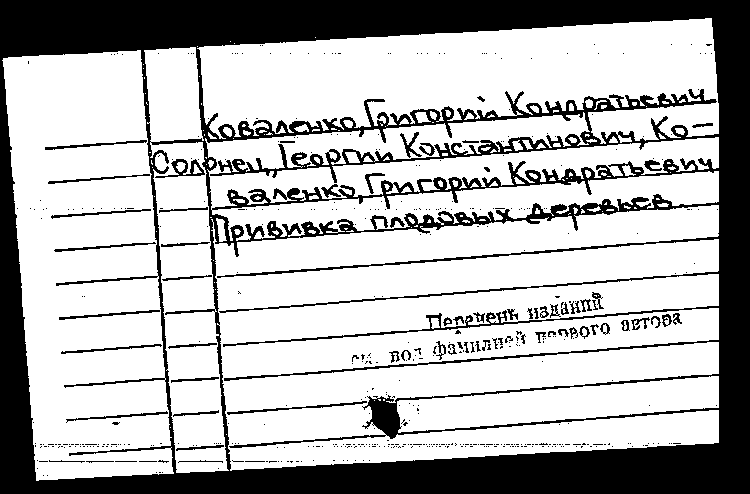 Коваленко, Григорий Кондратьевич
Солонец, Георгий Константинович, Ко-
валенко, Григорий Кондратьевич
Прививка плодовых деревьев.
Перечень изданий
см. под фамилией первого автора